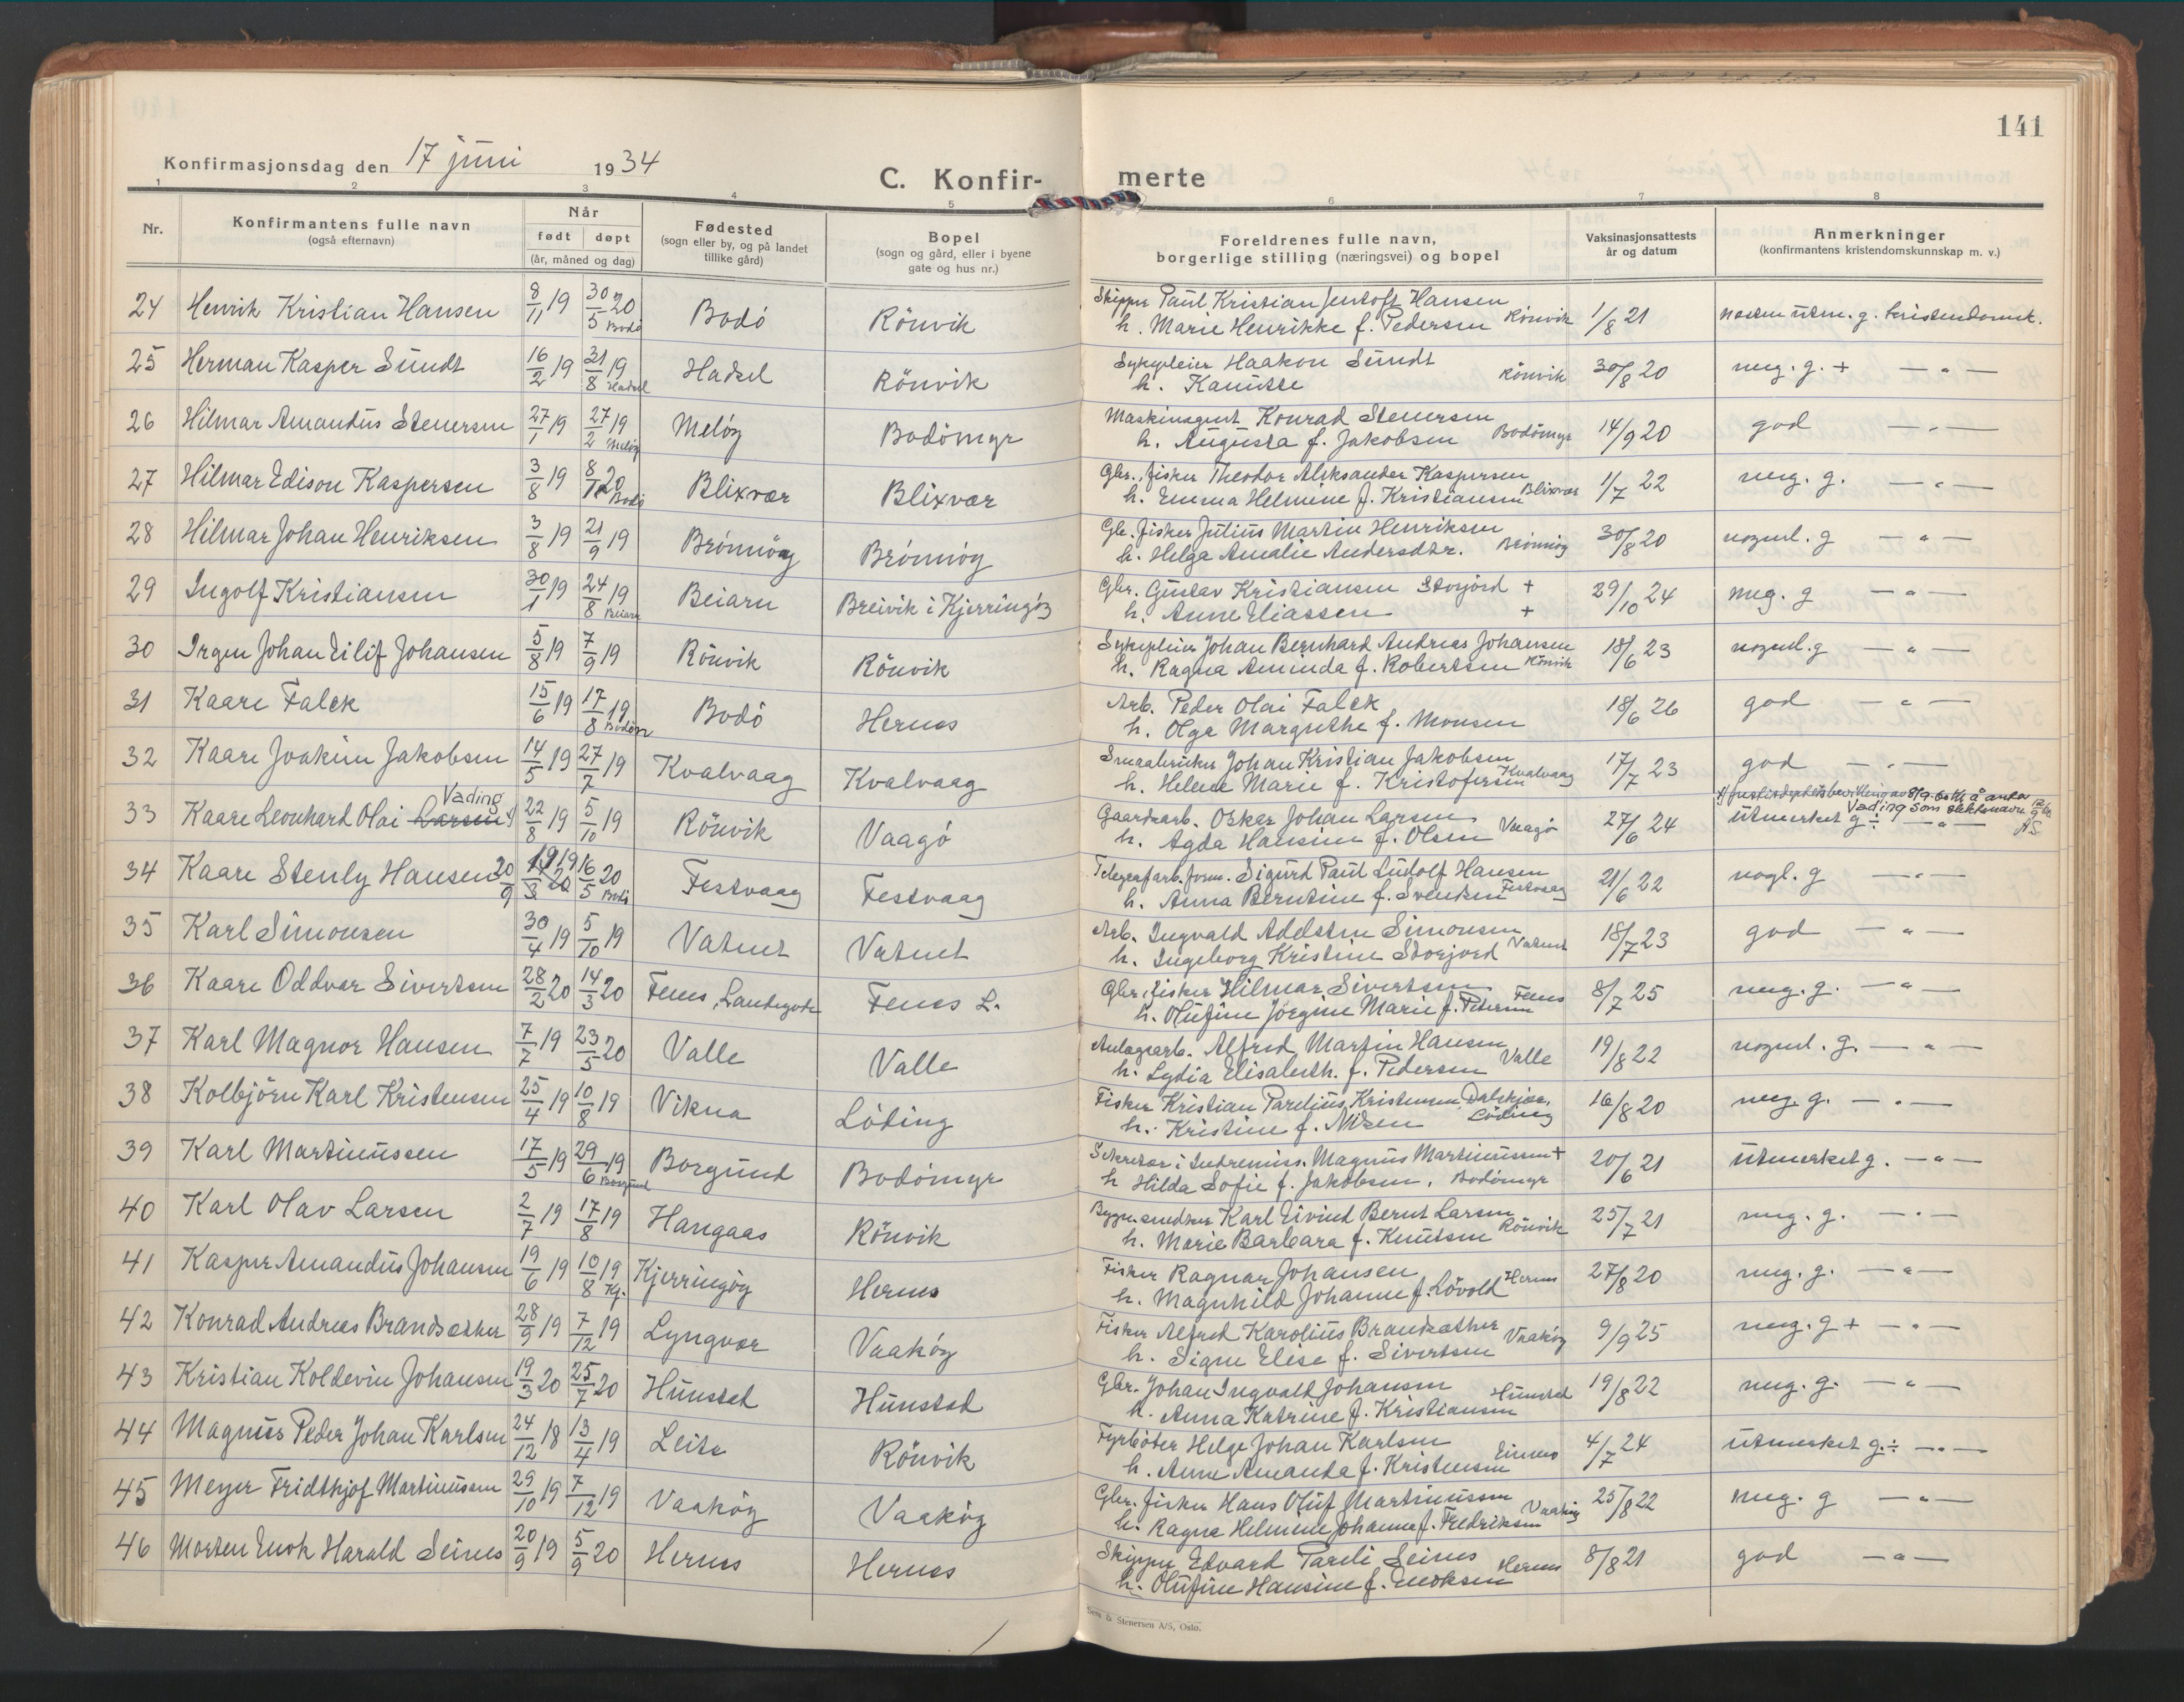 141
Konfirmasjonsdag den 17 juni 1934
C. Konfir- merte
1 2 3 4 5 6 7 8
Nr. Konfirmantens fulle navn (også efternavn) Når født døpt (år, måned og dag) Fødested (sogn eller by, og på landet tillike gård) Bopel (sogn og gård, eller i byene gate og hus nr.) Foreldrenes fulle navn, borgerlige stilling (næringsvei) og bopel Vaksinasjonsattests år og datum Anmerkninger (konfirmantens kristendomskunnskap m. v.)
24 Henrik Kristian Hansen 8/11 19 30/5 20 Bodö Bodö Rönvik Skipper Paul Kristian Jentoft Hansen
h. Marie Henrikke f. Pedersen Rönvik 1/8 21 nesten utm. g. kristendomsk.
25 Herman Kasper Sundt 16/2 19 31/8 19 Hadsel Hadsel Rönvik Sykepleier Haakon Sundt
h. Kanutte Rönvik 30/8 20 meg. g. + — " —
26 Hilmar Amandus Stenersen 27/1 19 27/2 19 Melöy Melöy Bodömyr Maskinagent Konrad Stenersen
h. Augusta f. Jakobsen Bodömyr 14/9 20 god — " —
27 Hilmar Edison Kaspersen 3/8 19 8/10 20 Bodö Blixvær Blixvær Gbr. fisker Theodor Aleksander Kaspersen
h. Emma Helmine f. Kristiansen Blixvær 1/7 22 meg. g. — " —
28 Hilmar Johan Henriksen 3/8 19 21/9 19 Brönnöy Brönnöy Gbr. fisker Julius Martin Henriksen
h. Helga Amalie Andersdtr. Brönnöy 30/8 20 nogenl. g — " —
29 Ingolf Kristiansen 30/1 19 24/8 19 Beiarn Beiarn Breivik i Kjerringöy Gbr. Gustav Kristiansen Storjord +
h. Anne Eliassen + 29/10 24 meg. g — " —
30 Irgen Johan Eilif Johansen 5/8 19 7/9 19 Rönvik Rönvik Sykepleier Johan Bernhard Andreas Johansen
h. Ragna Aminda f. Robertsen Rönvik 18/6 23 nogenl. g — " —
31 Kaare Falck 15/6 19 17/8 19 Bodöen Bodö Hernes Arb. Peder Olai Falck
h. Olga Margrethe f. Monsen 18/6 26 god — " —
32 Kaare Joakim Jakobsen 14/5 19 27/7 19 Kvalvaag Kvalvaag Smaabruker Johan Kristian Jakobsen
h. Helene Marie f. Kristofersen Kvalvaag 17/7 23 god — " —
33 Kaare Leonhard Olai Larsen x) Vading 22/8 19 5/10 19 Rönvik Vaagö Gaardsarb. Oskar Johan Larsen
h. Agda Hansine f. Olsen Vaagö 27/6 24 x) justisdeptets bevilling av 8/9-60 til å anta
Vading som slektsnavn
utmerket g ÷ — " —
34 Kaare Stenly Hansen 20/9 19 16/5 20 Bodö Festvaag Festvaag Telegrafarb. form. Sigurd Paul Ludolf Hansen
h. Anna Berntine f. Svendsen Festvaag 21/6 22 nogl. g — " —
35 Karl Simonsen 30/4 19 5/10 19 Vatnet Vatnet Arb. Ingvald Adelsten Simonsen
h. Ingeborg Kristine Storjord Vatnet 18/7 23 god — " —
36 Kaare Oddvar Sivertsen 28/2 20 14/3 20 Fenes, Landegode Fenes L. Gbr. fisker Hilmar Sivertsen
h. Olufine Jörgine Marie f. Petersen Fenes 8/7 25 meg. g. — " —
37 Karl Magnor Hansen 7/7 19 23/5 20 Valle Valle Anlegsarb. Alfred Martin Hansen
h. Lydia Elisabeth. f. Pedersen Valle 19/8 22 nogenl. g. — " —
38 Kolbjörn Karl Kristensen 25/4 19 10/8 19 Vikna Löding Fisker Kristian Parelius Kristensen
h. Kristine f. Nilsen Löding 16/8 20 meg. g. — " —
39 Karl Martinussen 17/5 19 29/6 19 Borgund Borgund Bodömyr Sekretær i Indremiss. Magnus Martinussen +
h Hilda Sofie f. Jakobsen, Bodömyr 20/6 21 utmerket g. — " —
40 Karl Olav Larsen 2/7 19 17/8 19 Haugaas Rönvik Bygn.snedker Karl Eivind Bernt Larsen
h. Marie Barbara f. Knutsen Rönvik 25/7 21 meg. g. — " —
41 Kasper Amandus Johansen 19/6 19 10/8 19 Kj. Kjerringöy Hernes Fisker Ragnar Johansen
h. Magnhild Johanne f. Lövold Hernes 27/8 20 meg. g. — " —
42 Konrad Andreas Brandsæther 28/9 19 7/12 19 Lyngvær Vaaköy Fisker Alfred Karolius Brandsæther
h. Signe Elise f. Sivertsen Vaaköy 9/9 25 meg. g + — " —
43 Kristian Koldevin Johansen 19/3 20 25/7 20 Hunstad Hunstad Gbr. Johan Ingvald Johansen
h. Anna Katrine f. Kristiansen Hunstad 19/8 22 meg. g. — " —
44 Magnus Peder Johan Karlsen 24/12 18 13/4 19 Leite Rönvik Fyrböter Helge Johan Karlsen
h. Anne Amanda f. Kristensen 4/7 24 utmerket g. ÷ — " —
45 Meyer Fridthjof Martinussen 29/10 19 7/12 19 Vaaköy Vaaköy Gbr. fisker Hans Oluf Martinussen
h. Ragna Helmine Johanne f. Fredriksen Vaaköy 25/8 22 meg. g — " —
46 Morten Enok Harald Seines 20/9 19 5/9 20 Hernes Hernes Skipper Edvard Pareli Seines
h. Olufine Hansine f. Enoksen Hernes 8/8 21 god — " —
Sem & Stenersen A/S, Oslo.